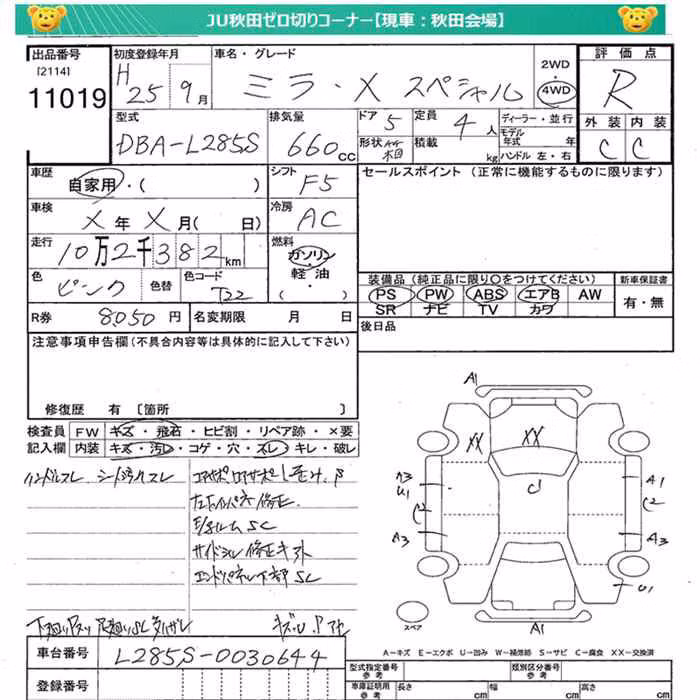 JU秋田ゼロ切りコーナー【現車：秋田会場】
出品番号
[2114]
11019
初度登録年月
H 25 9月
車名・グレード
ミラ・X スペシャル
2WD
4WD
評価点
R
外装 内装
C C
型式
DBA-L285S
排気量
660cc
ドア 5
形状
定員 4人
積載 kg
ディーラー・並行
モデル年式 年
ハンドル 左・右
車歴
自家用・( )
シフト
F5
車検
X年X月( 日)
冷房
AC
走行
10万2千382km
燃料
ガソリン
軽油
・( )
色
ピンク
色替
色コード
T22
R券 8050円
名変期限 月 日
セールスポイント (正常に機能するものに限ります)
装備品 (純正品に限り○をつけてください)
PS PW ABS エアB AW
SR ナビ TV カワ
新車保証書
有・無
後日品
注意事項申告欄(不具合内容等は具体的に記入して下さい)
修復歴 有 [箇所 ]
検査員記入欄
FW キズ・飛石・ヒビ割・リペア跡・×要
内装 キズ・汚レ・コゲ・穴・スレ・キレ・破レ
ハンドルスレ シート汚れスレ
修正
SC
サイドシル修正キズ
エンドパネル下部SC
A1
XX XX
A3 U1
A1
C2 C2
A3 A3
U1
A1
スペア
A-キズ E-エクボ U-凹み W-補修跡 S-サビ C-腐食 XX-交換済
車台番号
L285S-0030644
登録番号
型式指定番号
参考
類別区分番号
参考
車庫証明用
参考
長さ cm
幅 cm
高さ cm